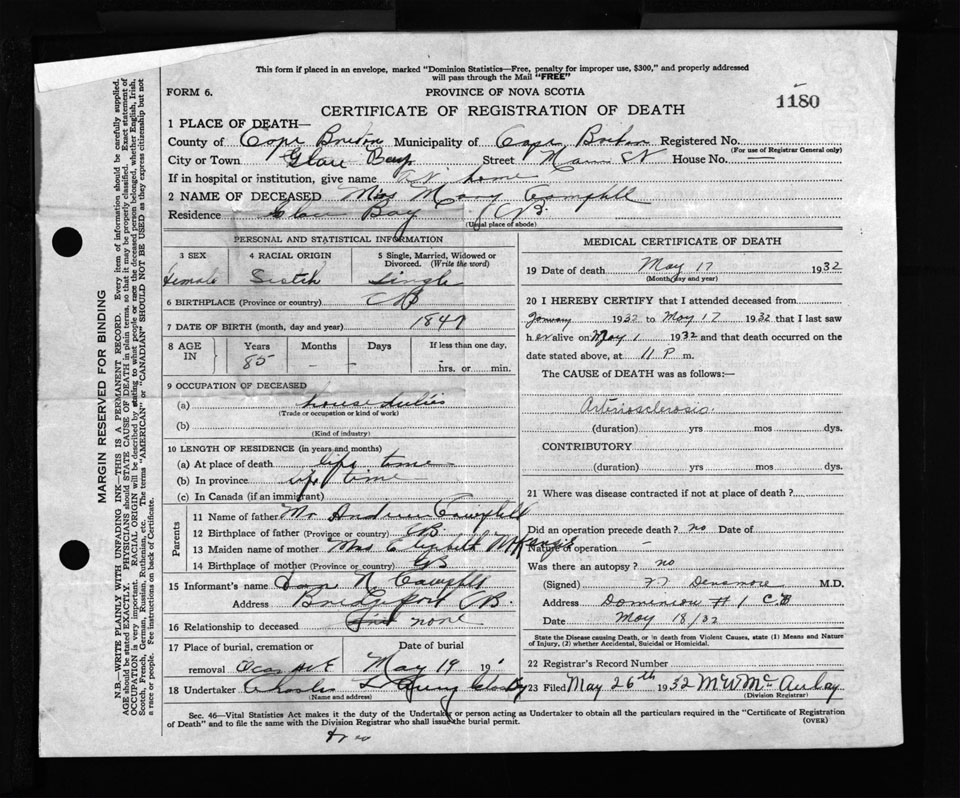 This form if placed in an envelope, marked "Dominion Statistics—Free, penalty for improper use, $300," and properly addressed
will pass through the Mail "FREE"
FORM 6.
PROVINCE OF NOVA SCOTIA
CERTIFICATE OF REGISTRATION OF DEATH
1180
1 PLACE OF DEATH—
County of Cape Breton Municipality of Cape Breton Registered No.
(For use of Registrar General only)
City or Town Glace Bay Street Main St House No. —
If in hospital or institution, give name At home
2 NAME OF DECEASED Miss Mary Campbell
Residence Glace Bay CB.
(Usual place of abode)
PERSONAL AND STATISTICAL INFORMATION
3 SEX
4 RACIAL ORIGIN
5 Single, Married, Widowed or
Divorced. (Write the word)
female Scotch Single
6 BIRTHPLACE (Province or country) CB
7 DATE OF BIRTH (month, day and year) 1847
8 AGE
IN
Years Months Days If less than one day,
85 – – hrs. or min.
9 OCCUPATION OF DECEASED
(a) house duties
(Trade or occupation or kind of work)
(b)
(Kind of industry)
10 LENGTH OF RESIDENCE (in years and months)
(a) At place of death life time
(b) In province life time
(c) In Canada (if an immigrant)
Parents
11 Name of father Mr Andrew Campbell
12 Birthplace of father (Province or country) CB.
13 Maiden name of mother Mrs Elizabeth
14 Birthplace of mother (Province or country) CB
15 Informant's name Dan N. Campbell
Address Bridgeport CB.
16 Relationship to deceased none
17 Place of burial, cremation or Date of burial
removal May 19 19
18 Undertaker Charles
(Name and address)
MEDICAL CERTIFICATE OF DEATH
19 Date of death May 17 1932
(Month, day and year)
20 I HEREBY CERTIFY that I attended deceased from
January 1932 to May 17 1932 that I last saw
h er alive on May 1 1932 and that death occurred on the
date stated above, at 11 P m.
The CAUSE of DEATH was as follows:—
Arteriosclerosis.
(duration) yrs mos dys.
CONTRIBUTORY
(duration) yrs mos dys.
21 Where was disease contracted if not at place of death?
Did an operation precede death? no Date of
Nature of operation –
Was there an autopsy? no
(Signed) Densmore M.D.
Address Dominion #1 CB
Date May 18/32
State the Disease causing Death, or in death from Violent Causes, state (1) Means and Nature
of Injury, (2) whether Accidental, Suicidal or Homicidal.
22 Registrar's Record Number
23 Filed May 26th 1932 McAulay
(Division Registrar)
Sec. 46—Vital Statistics Act makes it the duty of the Undertaker or person acting as Undertaker to obtain all the particulars required in the "Certificate of Registration
of Death" and to file the same with the Division Registrar who shall issue the burial permit. (OVER)
MARGIN RESERVED FOR BINDING
N.B.—WRITE PLAINLY WITH UNFADING INK—THIS IS A PERMANENT RECORD. Every item of information should be carefully supplied.
AGE should be stated EXACTLY. PHYSICIANS should STATE CAUSE OF DEATH in plain terms, so that it may be properly classified. Exact statement of
OCCUPATION is very important. RACIAL ORIGIN will be described by stating to what people or race the deceased person belonged, whether English, Irish,
Scotch, French, German, Russian, Ruthenian, etc. The terms "AMERICAN" or "CANADIAN" SHOULD NOT BE USED as they express citizenship but not
a race or people. Fee instructions on back of Certificate.